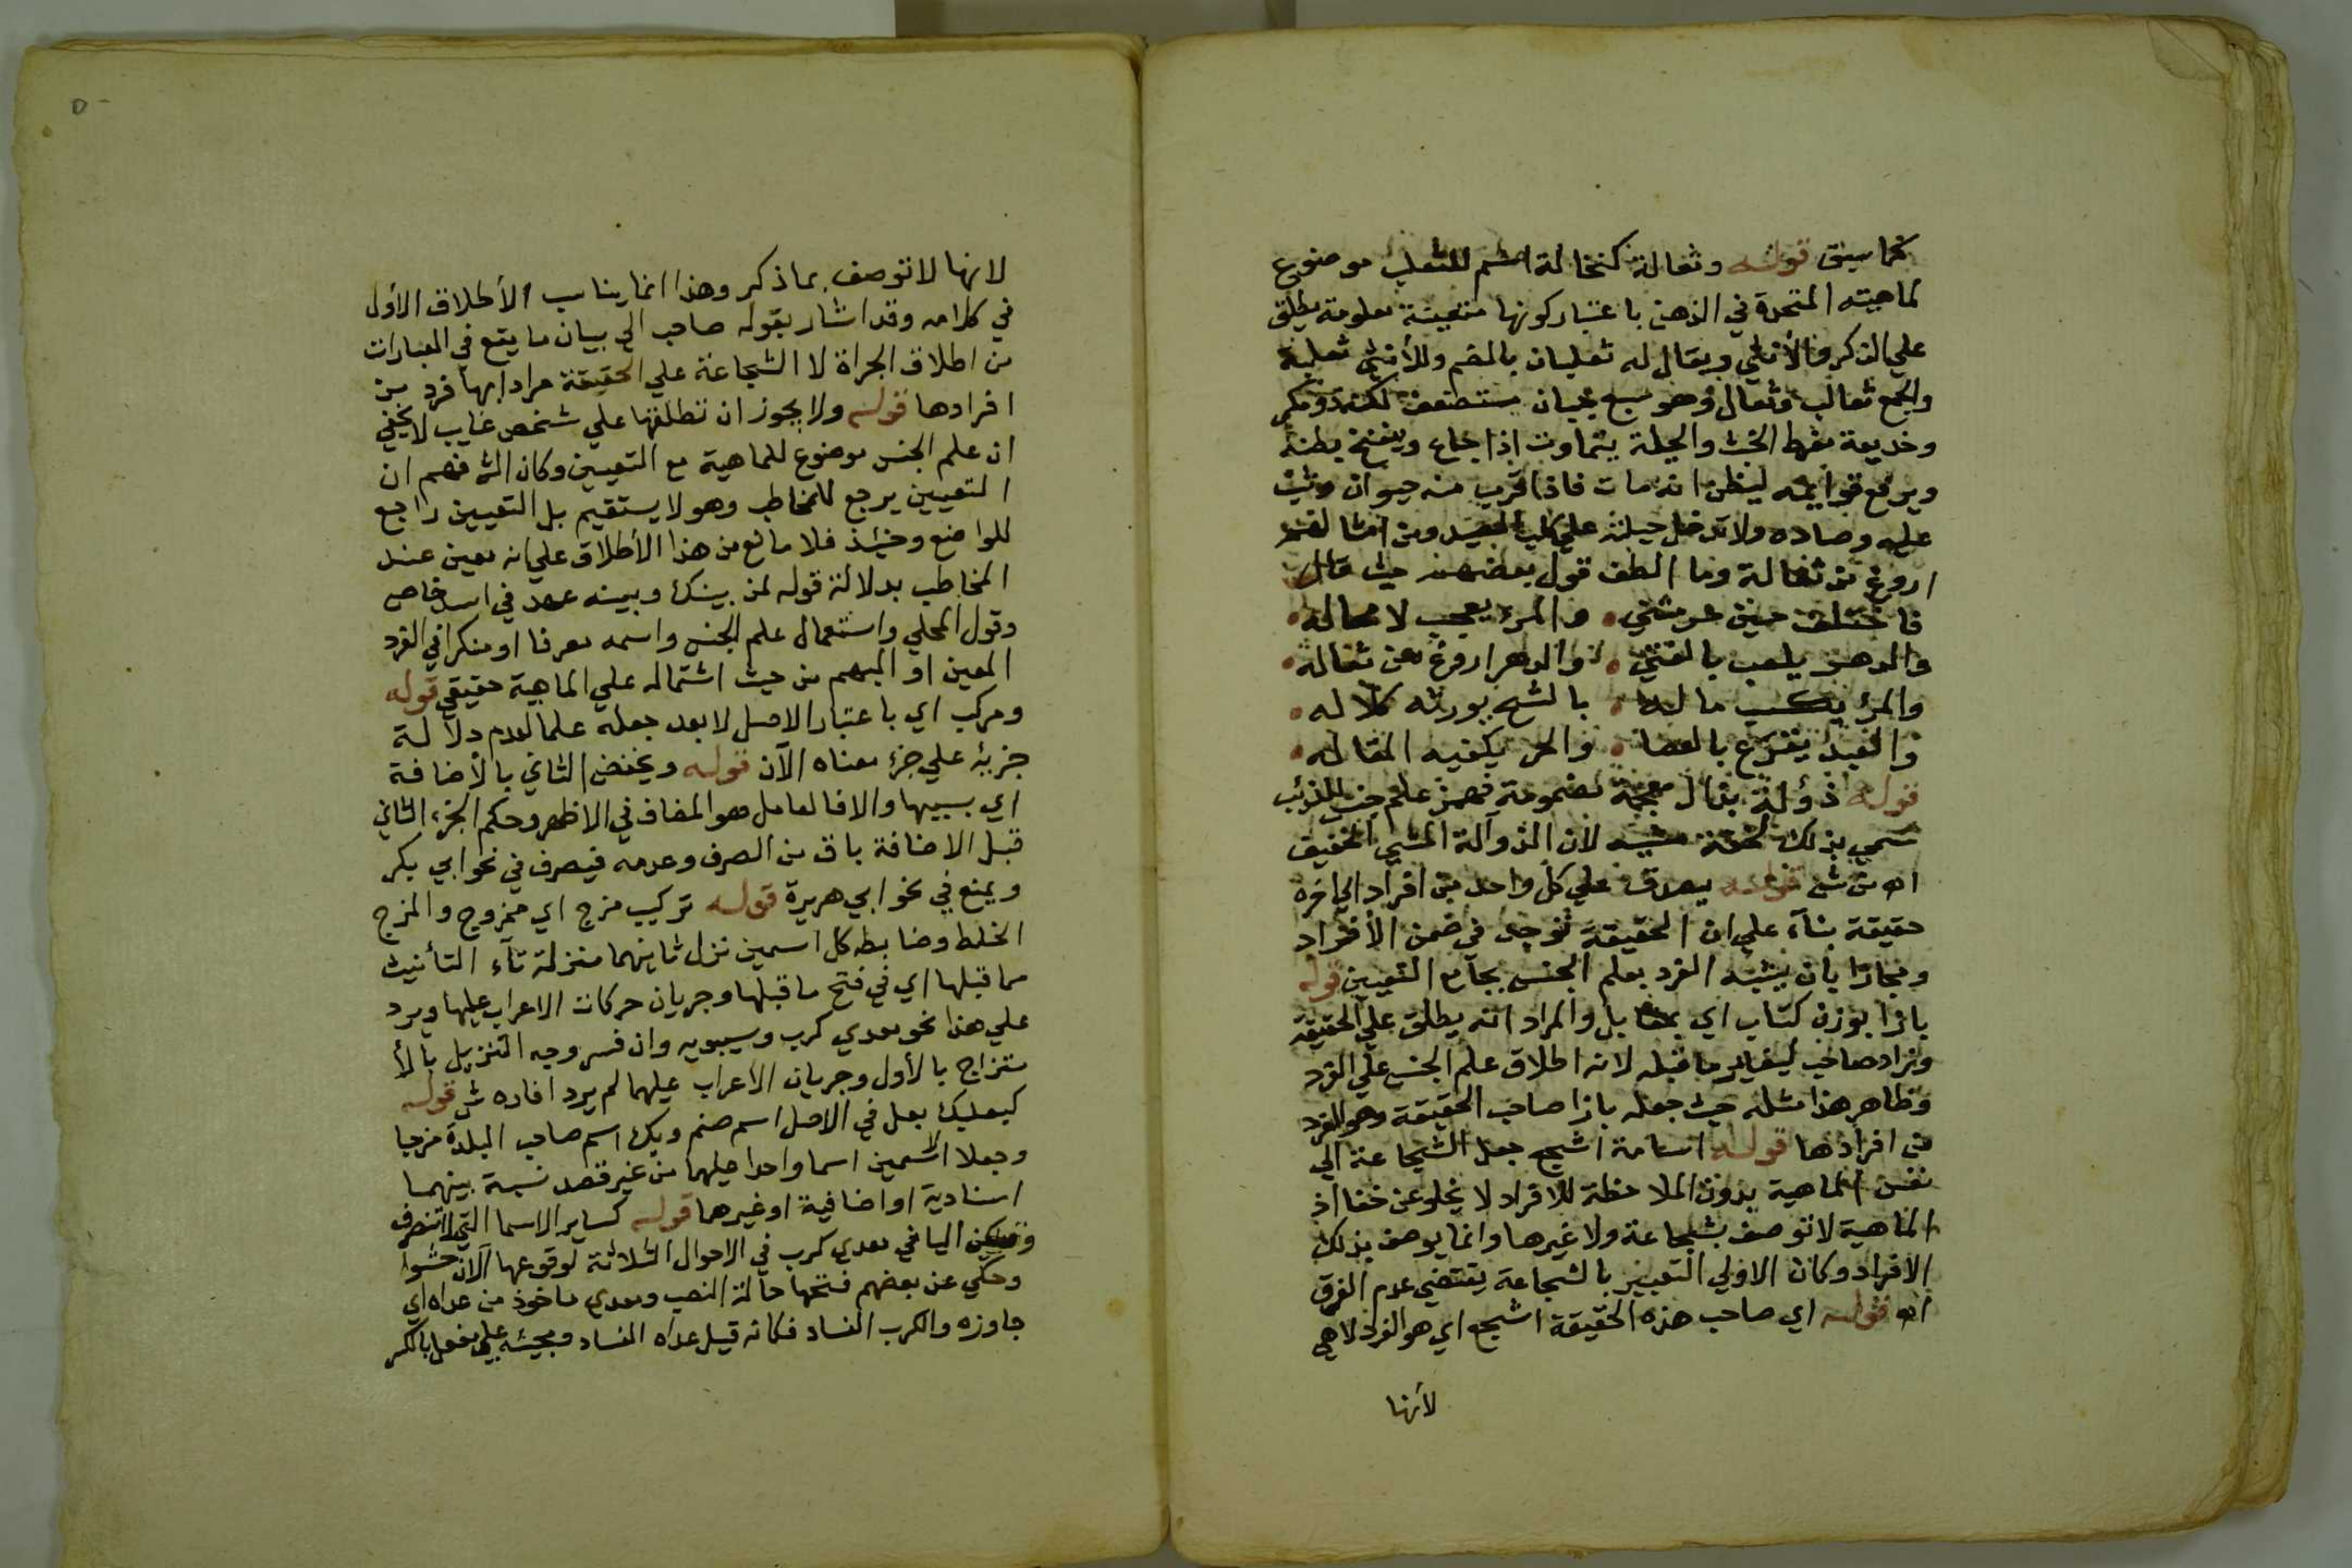 كما سبق قوله وثعالة كنخالة اسم للثعلب موضوع
لماهيته المتحدة في الذهن باعتبار كونها متعينة معلومة يطلق
علي الذكر والأنثي ويقال له ثعلبان بالضم وللأنثي ثعلبة
والجمع ثعالب وثعال وهو سبع جبان مستضعف لكنه ذو مكر
وخديعة مفرط الخبث والحيلة يتماوت اذا جاع وينفخ بطنه
ويرفع قوايمه ليظن انه مات فاذا قرب منه حيوان وثب
عليه وصاده ولا تدخل حيلته علي كلب الصيد ومن امثالهم
اروغ من ثعالة وما الطف قول بعضهم حيث قال
فاحتلت حين صرمتني • والمرء يعجب لا محاله •
والدهر يلعب بالفتي • والدهر اروغ من ثعاله •
والمرء يكسب ماله • بالشح يورثه كلاله •
والعبد يقرع بالعصا • والحر يكفيه المقاله •
قوله ذؤلة بذال معجمة مضمومة فهمز علم جنس للذئب
سمي بذلك لخفة مشيه لان الذوآلة المشي الخفيف
اه من ش قوله يصدق علي كل واحد من افراد الي اخره
حقيقة بنآء علي ان الحقيقة توجد في ضمن الأفراد
ومجازا بان يشبه الفرد بعلم الجنس بجامع التعيين قوله
بازا بوزن كتاب اي بمقابل والمراد انه يطلق علي الحقيقة
وزاد صاحب ليغاير ما قبله لانه اطلاق علم الجنس علي الفرد
وظاهر هذا مثله حيث جعله بازا صاحب الحقيقة وهو الفرد
من افرادها قوله اسامة اشجع جعل الشجاعة الي
نفس الماهية بدون الملاحظة للافراد لا يخلو عن خفا اذ
الماهية لا توصف بشجاعة ولا غيرها وانما يوصف بذلك
الافراد وكان الاولي التعبير بالشجاعة يقتضي عدم الفرق
اه قوله اي صاحب هذه الحقيقة اشجع اي هو الفرد لا هي
لأنها
لانها لا توصف بما ذكر وهذا انما يناسب الأطلاق الأول
في كلامه وقد اشار بقوله صاحب الي بيان ما يقع في العبارات
من اطلاق الجراة لا الشجاعة علي الحقيقة مرادا بها فرد من
افرادها قوله ولا يجوز ان تطلقها علي شخص غايب لا يخفي
ان علم الجنس موضوع للماهية مع التعيين وكان الش فهم ان
التعيين يرجع للمخاطب وهو لا يستقيم بل التعيين راجع
للواضع وحينئذ فلا مانع من هذا الأطلاق علي انه معين عند
المخاطب بدلالة قوله لمن بينك وبينه عهد في اسد خاص
وقول المحلي واستعمال علم الجنس واسمه معرفا او منكرا في الفرد
المعين او المبهم من حيث اشتماله علي الماهية حقيقي قوله
ومركب اي باعتبار الاصل لا بعد جعله علما لعدم دلالة
جزئه علي جزء معناه الآن قوله ويخفض الثاني بالأضافة
اي بسببها والا فالعامل هو المضاف في الاظهر وحكم الجزء الثاني
قبل الاضافة باق من الصرف وعدمه فيصرف في نحو ابي بكر
ويمنع في نحو ابي هريرة قوله تركيب مزج اي ممزوج والمزج
الخلط وضابطه كل اسمين نزل ثانيهما منزلة تآء التأنيث
مما قبلها اي في فتح ما قبلها وجريان حركات الاعراب عليها ويرد
علي هذا نحو معدي كرب وسيبويه وان فسر وجه التنزيل بالأ
متزاج بالأول وجريان الأعراب عليهما لم يرد افاده ش قوله
كبعلبك بعل في الاصل اسم صنم وبك اسم صاحب البلدة مزجا
وجعلا الاسمين اسما واحدا عليهما من غير قصد نسبة بينهما
اسنادية او اضافية او غيرهما قوله كساير الاسما التي لا تنصرف
وتسكن اليا في معدي كرب في الاحوال الثلاثة لوقوعها الآن حشوا
وحكي عن بعضهم فتحها حالة النصب ومعدي ماخوذ من عداه اي
جاوزه والكرب الفساد فكانه قيل عداه الفساد ومجيئه علي مفعل بالكسر